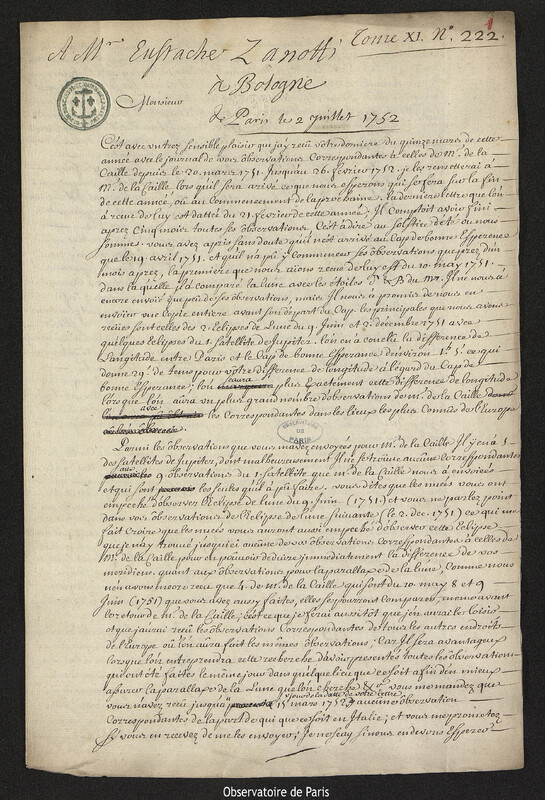 Tome XI. N.º 222.
A Mr. Eustache Zanotti
à Bologne
Monsieur
de Paris le 2 Juillet 1752
C'est avec un tres sensible plaisir que j'ay reçû vôtre derniere du quinze mars de cette
année avec le journal de vous observations Correspondantes à celles de Mr. de la
Caille depuis le 20. mars 1751. Jusqu'au 26. fevrier 1752. je les remettrai à
Mr. de la Caille lors qu'il sera arivé ce que nous esperons qui se fera sur la fin
de cette année, où au Commencement de la prochaine. la derniere lettre que l'on
à reçuë de luy est dattée du 21. fevrier de cette année; Il Comptoit avoir fini
aprez Cinq mois toutes ses observations. C'est à dire au solstice d'été ou nous
sommes. vous avez apris sans doute qu'il n'est arrivé au Cap de bonne Esperance
que le 19 avril 1751. et qu'il n'a pû y commencer ses observations que prez d'un
mois aprez, la premiere que nous aïons reçuë de luy est du 10. may 1751.
dans laquelle il à comparé la lune avec les étoiles & B du Il ne nous à
encore envoié que peu de ses observations, mais Il nous à promis de nous en
envoier une Copie entiere avant son départ du Cap. les principales que nous avons
reçües sont celles des 2. eclipses de Lune du 9. Juin et 2. decembre 1751 avec
quelques Eclipses du 1. satellite de Jupiter. l'on en à conclu la difference de
Longitude entre Paris et le Cap de bonne Esperance d'environ 1.h 5.' ce qui
donne 29.' de tems pour vôtre difference de longitude à l'égard du Cap de
bonne Esperance; l'on sçaura plus Exactement cette difference de longitude
lorsque l'on aura un plus grand nombre d'observations de Mr. de la Caille
avec les Correspondantes dans les lieux les plus Connûs de l'Europe
Parmi les observations que vous m'avez envoyées pour Mr. de la Caille Il y en à 5
des satellites de Jupiter, dont malheureusement Il ne se trouve aucune Correspondante
aux 9 observations du 1. satellite que Mr. de la Caille nous à envoiées
et qui sont les seules qu'il à pû faire. vous dites que les nuées vous ont
empeché d'observer l'Eclipse de lune du 9. Juin (1751) et vous ne parlez point
dans vos observations de l'Eclipse de Lune suivante (le 2. dec. 1751) ce qui me
fait croire que les nuées vous auront aussi empeché d'observer cette Eclipse
que je n'ay trouvé jusqu'ici aucune de vos observations Correspondantes à celles de
Mr. de la Caille pour en pouvoir deduire immediatement la difference de vos
meridiens. quant aux observations pour la parallaxe de la lune, Comme nous
n'en avons encore reçu que 4. de Mr. de la Caille qui sont du 10. may 8 et 9
Juin (1751) que vous avez aussi faites, elles se pourront Comparer, même avant
le retour de Mr. de la Caille; c'est ce que je ferai aussitôt que j'en aurai le loisir
et que j'aurai reçû les observations Correspondantes de tous les autres endroits
de l'Europe où l'on aura fait les mêmes observations; Car Il sera avantageux
lorsque l'on entreprendra cette recherche d'avoir presentes toutes les observations
qui ont été faites le même jour dans quelque lieu que ce soit afin d'en mieux
assurer la parallaxe de la Lune que l'on cherche &c. vous me mandez que
vous n'avez reçû jusqu'à 15 mars 1752, jour de la datte de vôtre lettre aucune observation
Correspondantes de la part de qui que ce soit en Italie; et vous me promettez
Si vous en recevez de me les envoyer; Je ne sçay si nous en devons Esperer
OBSERVATOIRE DE PARIS
Observatoire de Paris